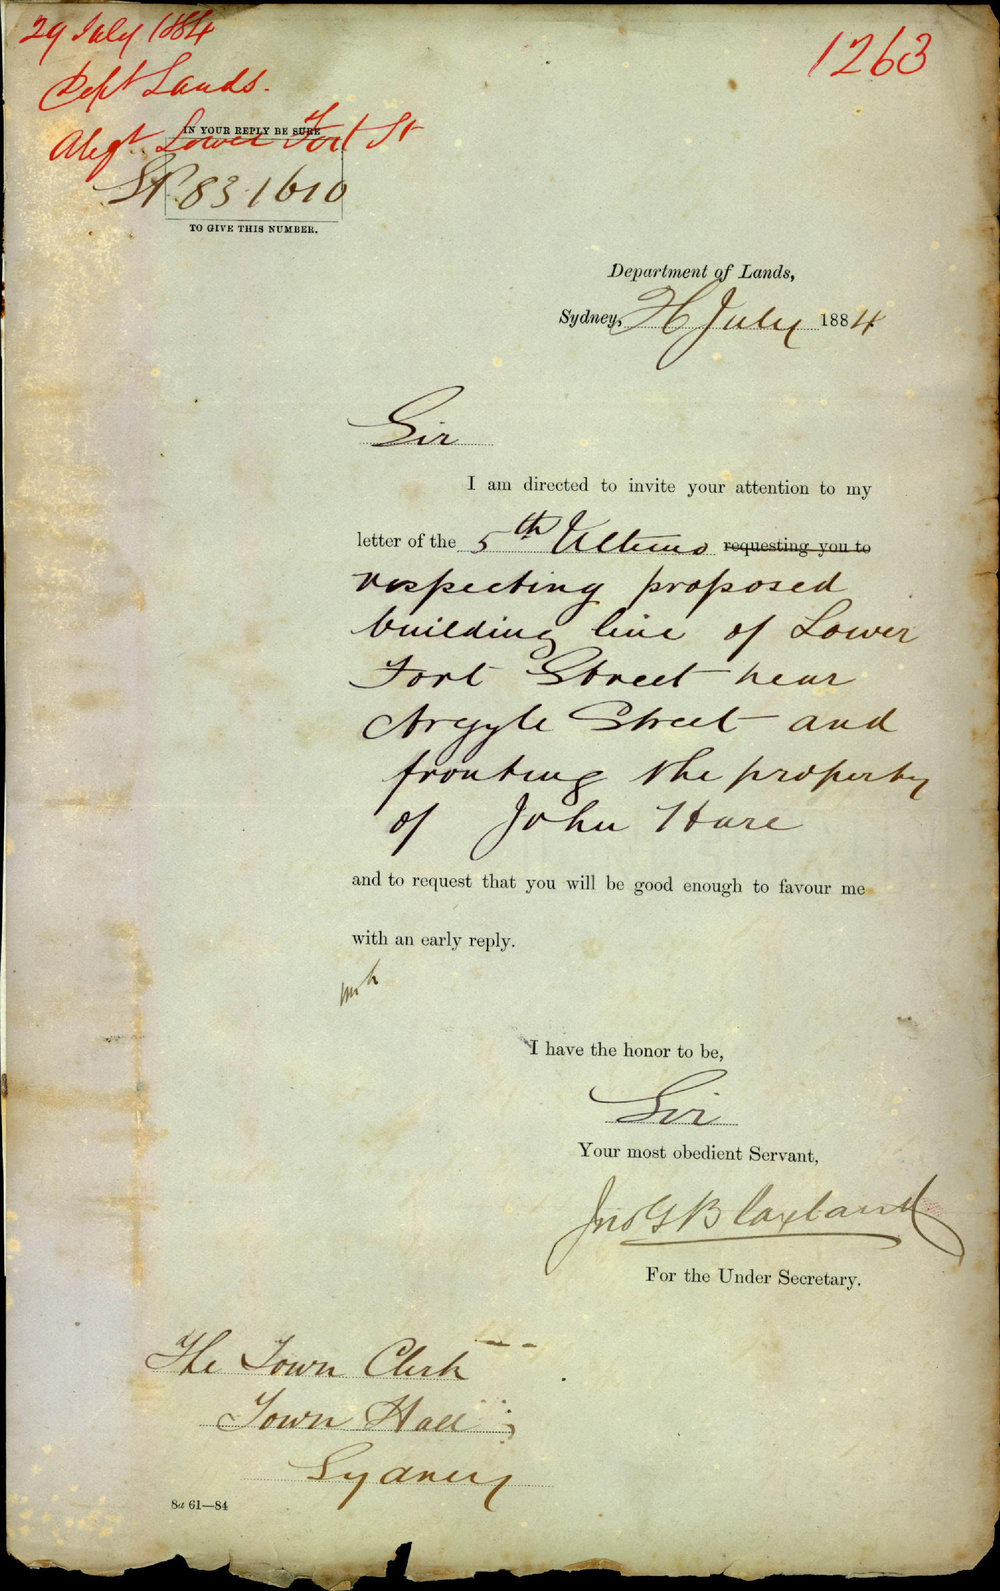 29 July 1884
1263
Dept Lands.
Alegt. Lower Fort St
IN YOUR REPLY BE SURE
SP. 83-1610
TO GIVE THIS NUMBER.
Department of Lands,
Sydney, July 1884
Sir
I am directed to invite your attention to my
letter of the 5th Ultimo requesting you to
respecting proposed
building line of Lower
Fort Street near
Argyle Street and
fronting the property
of John Hare
and to request that you will be good enough to favour me
with an early reply.
I have the honor to be,
Sir
Your most obedient Servant,
Jno G Blaxland
For the Under Secretary.
The Town Clerk
Town Hall
Sydney
8a 61—84